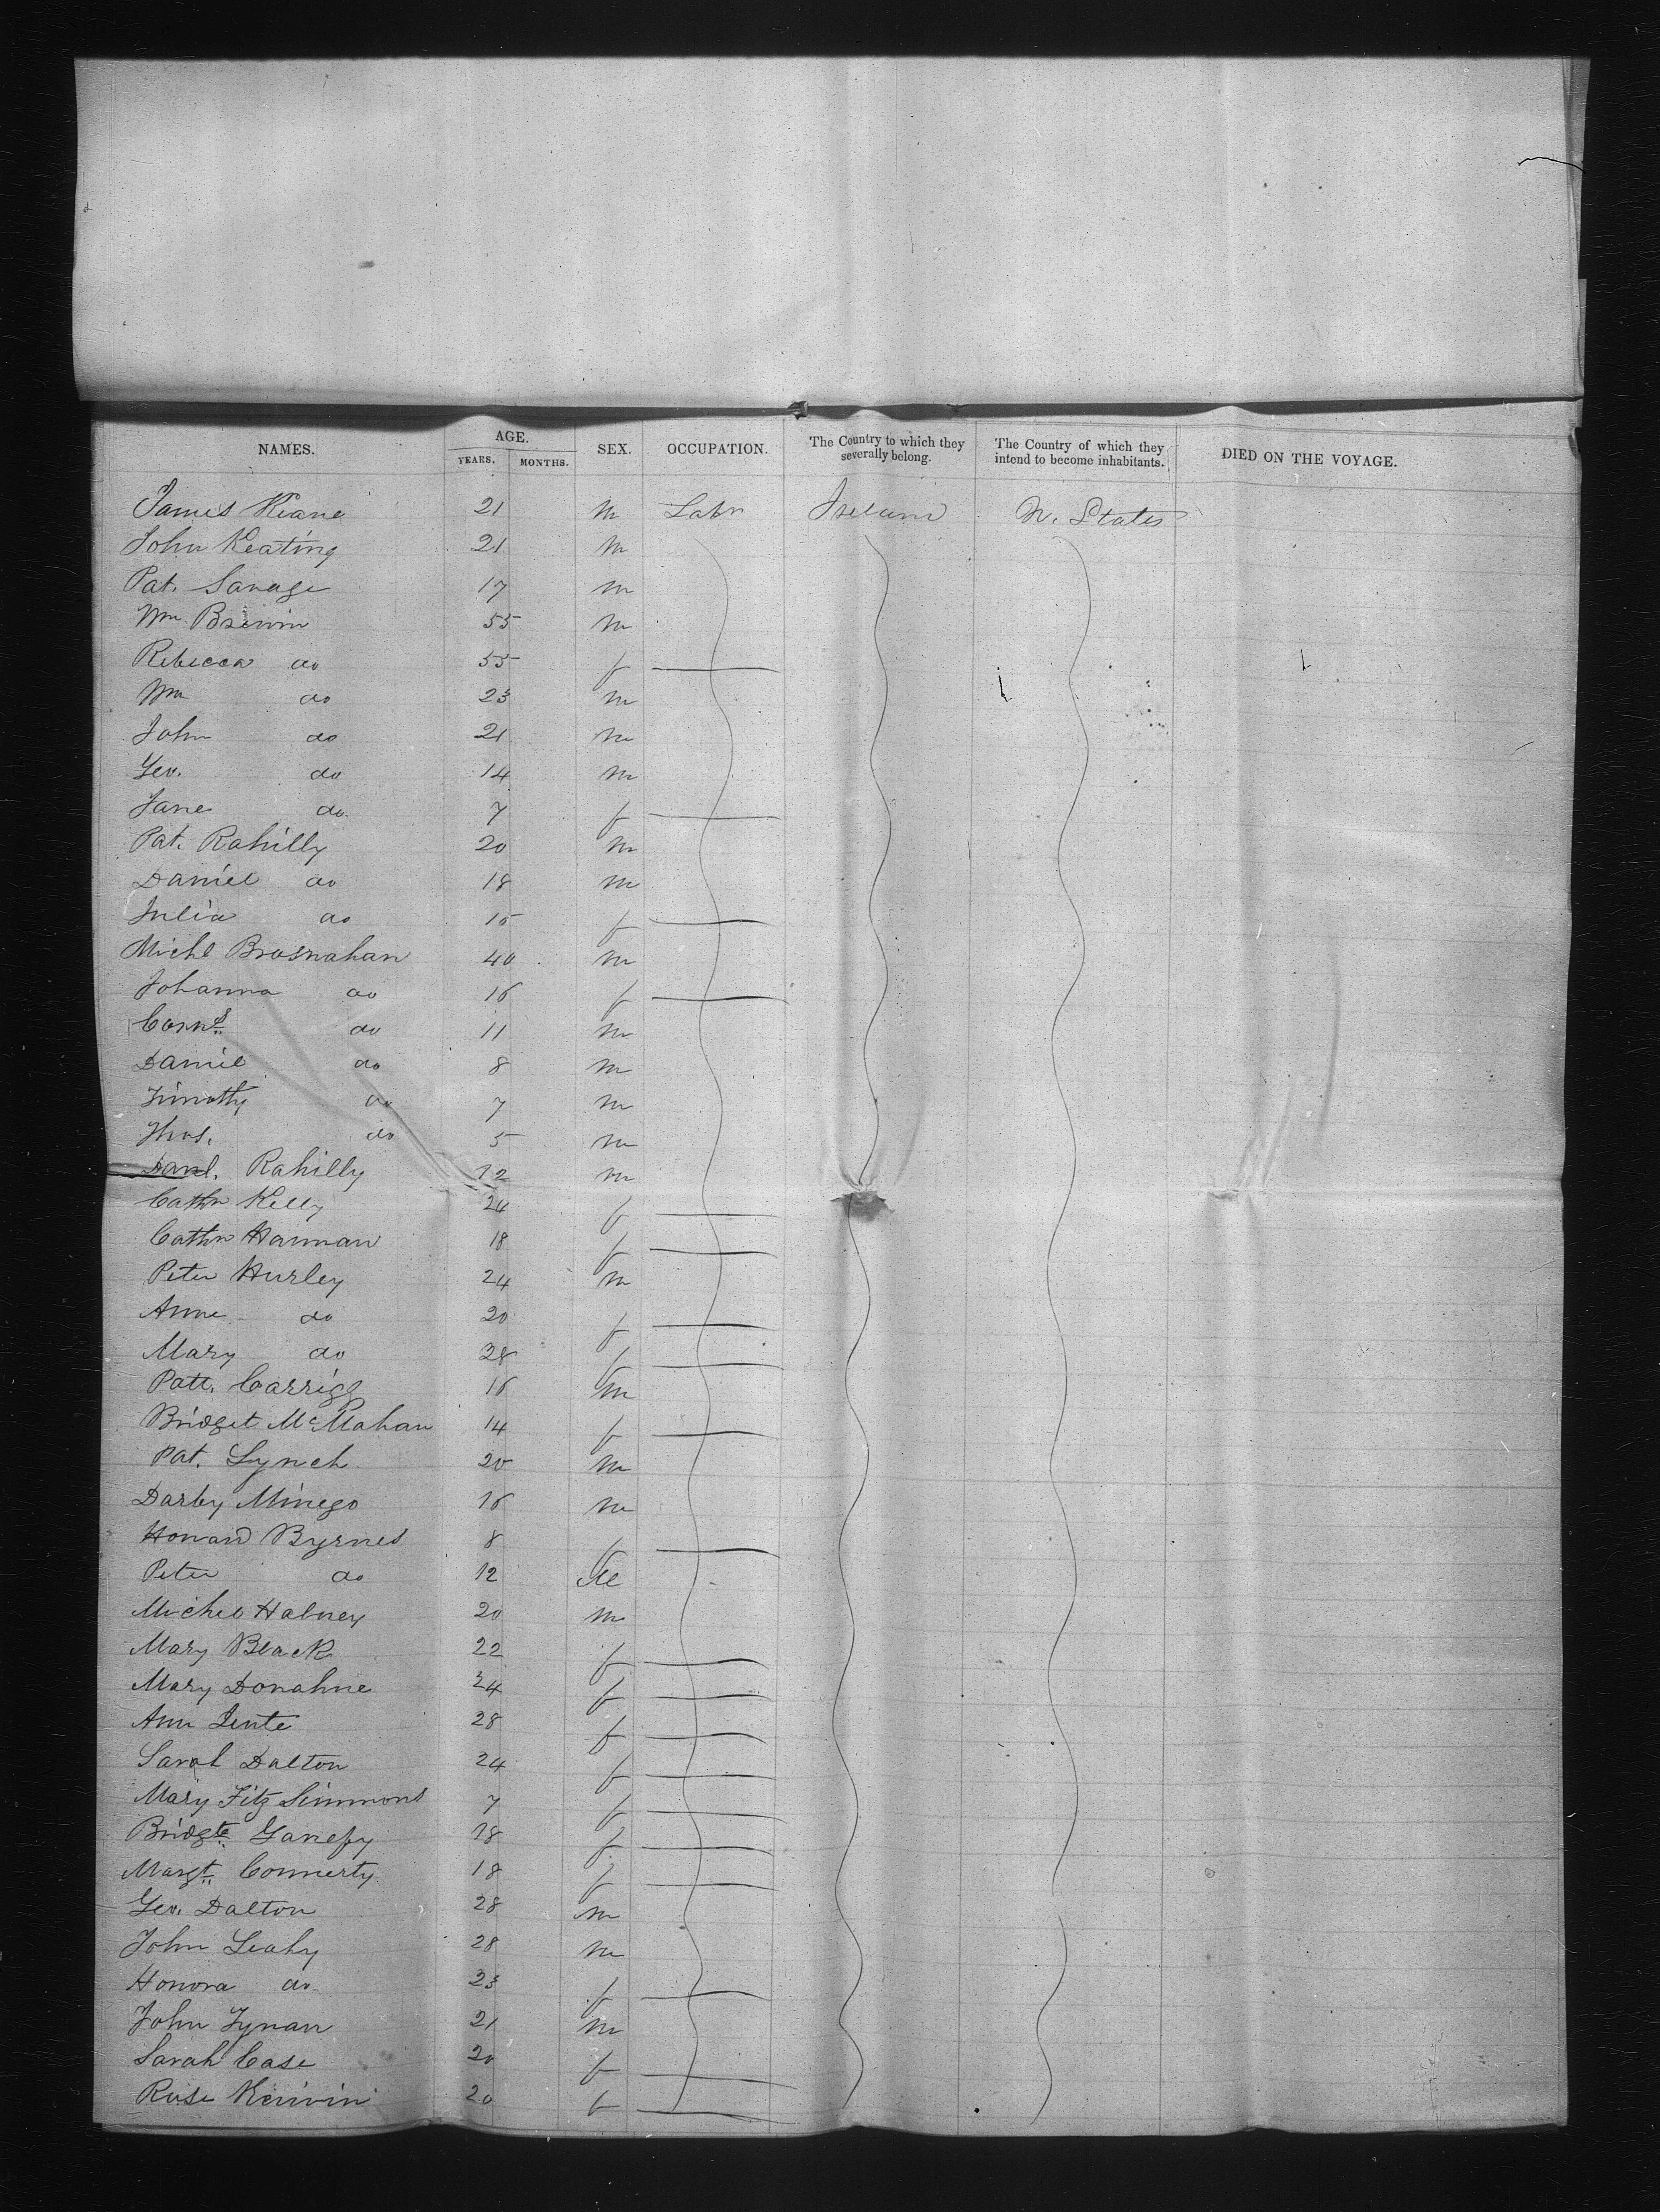 NAMES. AGE. YEARS. MONTHS. SEX. OCCUPATION. The Country to which they severally belong. The Country of which they intend to become inhabitants. DIED ON THE VOYAGE.
James Keane 21 m Labr Ireland U. States
John Keating 21 m
Pat. Savage 17 m
Wm Brewin 55 m
Rebecca do 55 f
Wm do 23 m
John do 21 m
Geo. do 14 m
Jane do. 7 f
Pat. Rahilly 20 m
Daniel do 18 m
Julia do 15 f
Michl Brosnahan 40 m
Johanna do 16 f
Corns do 11 m
Daniel do 8 m
Timothy do 7 m
Thos. do 5 m
Danl. Rahilly 12 m
Cathn Kelly 24 f
Cathn Hannan 18 f
Peter Hurley 24 m
Anne do 20 f
Mary do 28 f
Patt. Carrigg 16 m
Bridget McMahan 14 f
Pat. Lynch 20 m
Darby Minego 16 m
Byrnes 8 f
Peter do 12 M
Michl 20 m
Mary Black 22 f
Mary Donahue 24 f
Ann 28 f
Sarah Dalton 24 f
Mary Fitz Simmons 7 f
Bridgt 18 f
Margt Connerty 18 f
Geo. Dalton 28 m
John Leahy 28 m
Honora do 23 f
John Tynan 21 m
Sarah Case 20 f
Rose Kerwin 20 f